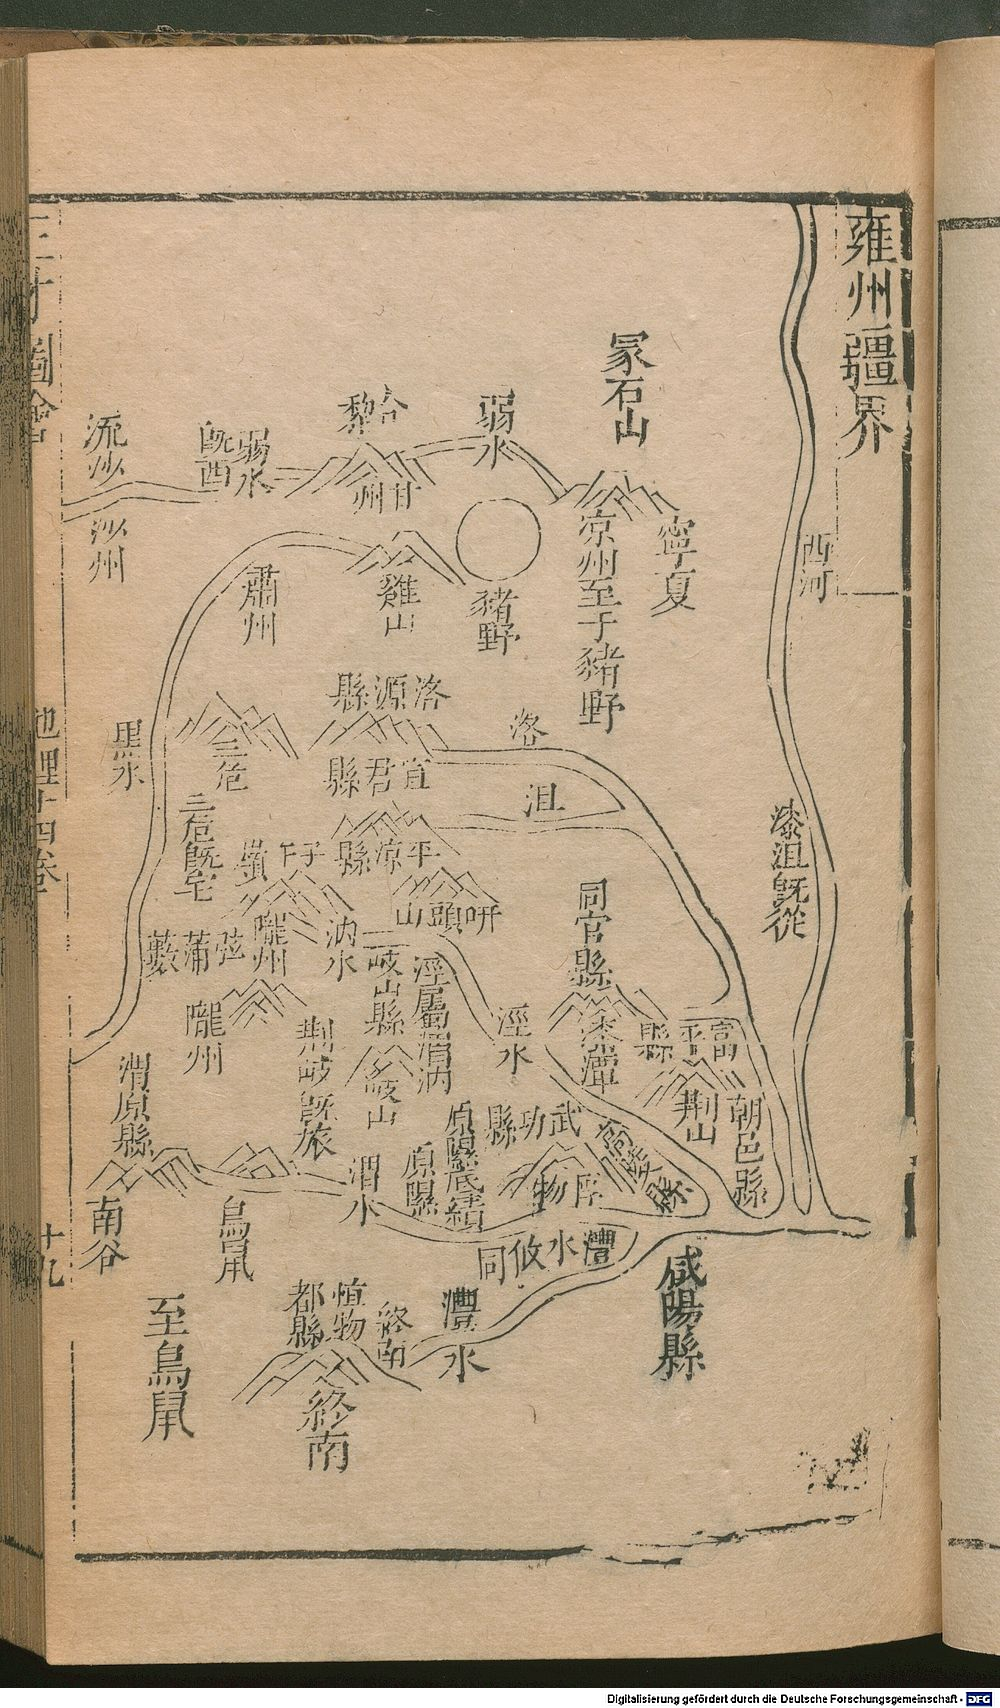 雍州疆界
西河
漆沮既從
冡石山
寧夏
凉州至于豬野
弱水
豬野
合黎
甘州
雞山
弱水
既西
流沙
沙州
肅州
黑水
洛源縣
洛
宜君縣
沮
三危
三危既宅
平凉縣
幵頭山
隴州
汭水
弦蒲藪
隴州
岐山縣
岐山
涇屬渭汭
涇水
同官縣
富平縣
荆山
朝邑縣
荆岐既旅
渭原縣
南谷
鳥鼠
渭水
原隰
原隰底績
武功縣
灃水攸同
咸陽縣
灃水
終南
都縣
終南
至鳥鼠
三才圖會
地理十四卷
十九
Digitalisierung gefördert durch die Deutsche Forschungsgemeinschaft - DFG